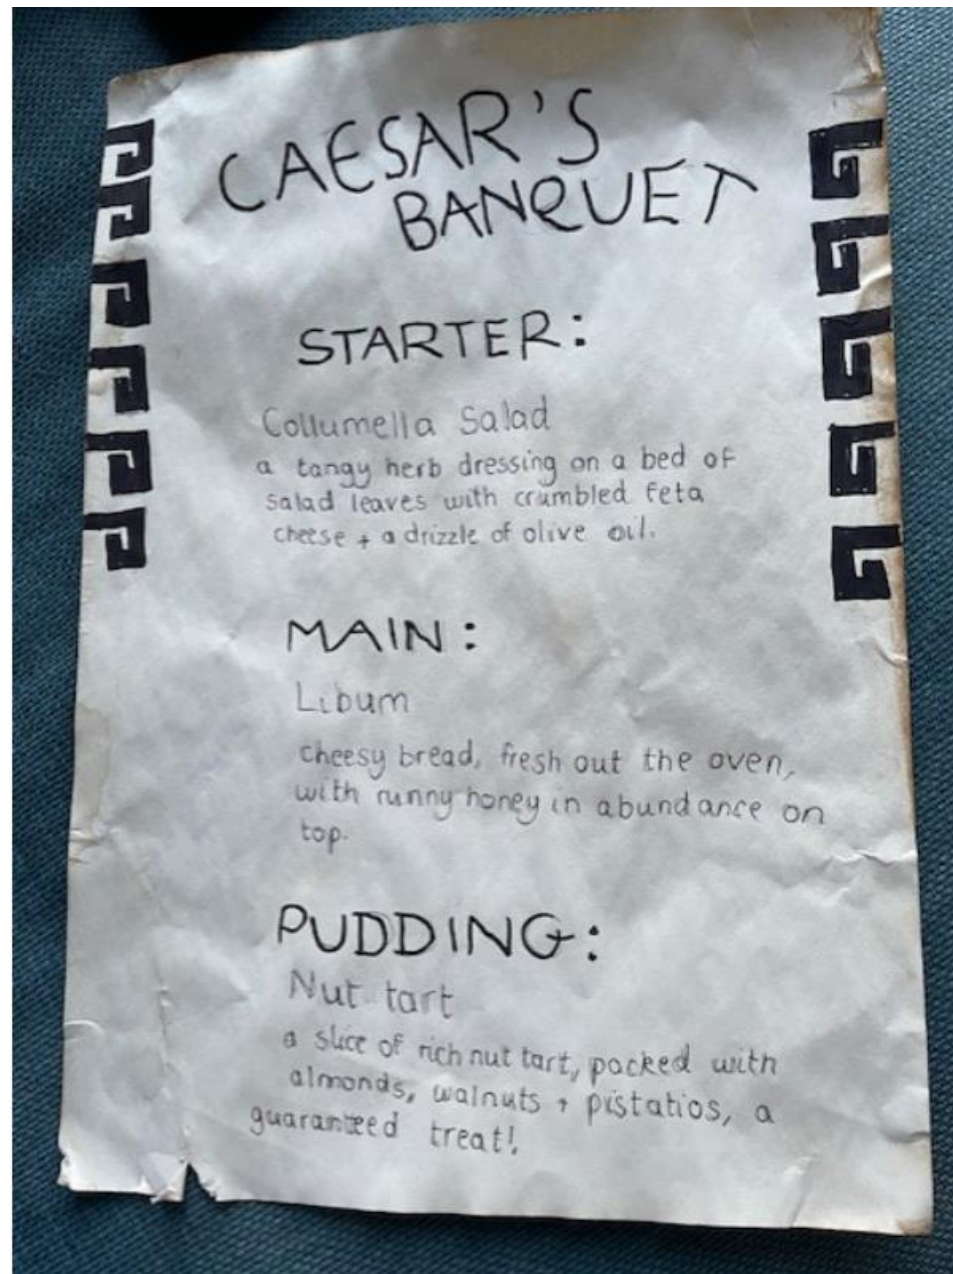 CAESAR'S
BANQUET
STARTER:
Collumella Salad
a tangy herb dressing on a bed of
salad leaves with crumbled feta
cheese + a drizzle of olive oil.
MAIN:
Libum
cheesy bread, fresh out the oven,
with runny honey in abundance on
top.
PUDDING:
Nut tart
a slice of rich nut tart, packed with
almonds, walnuts + pistatios, a
guaranteed treat!